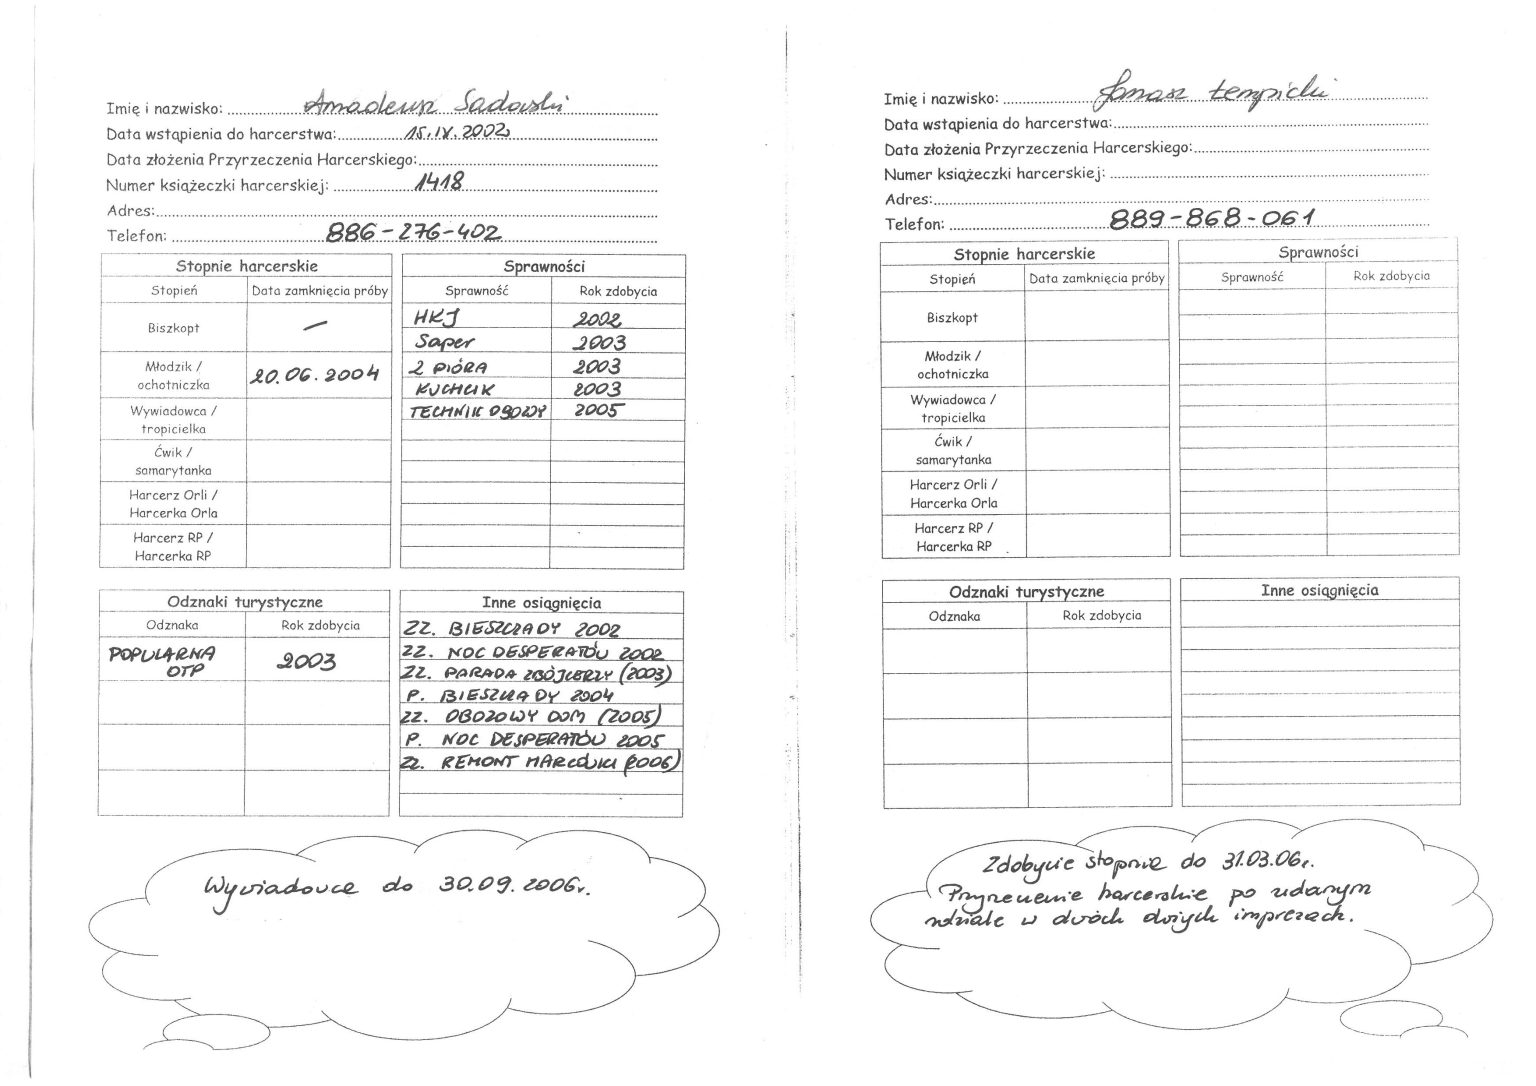 Imię i nazwisko: Amadeusz Sadowski
Data wstąpienia do harcerstwa: 15.IX.2002
Data złożenia Przyrzeczenia Harcerskiego:
Numer książeczki harcerskiej: 1418
Adres:
Telefon: 886-276-402
Stopnie harcerskie
Stopień Data zamknięcia próby
Biszkopt —
Młodzik /
ochotniczka 20.06.2004
Wywiadowca /
tropicielka
Ćwik /
samarytanka
Harcerz Orli /
Harcerka Orla
Harcerz RP /
Harcerka RP
Sprawności
Sprawność Rok zdobycia
HKJ 2002
Saper 2003
2 PIÓRA 2003
KUCHCIK 2003
TECHNIK OBOZOWY 2005
Odznaki turystyczne
Odznaka Rok zdobycia
POPULARNA
OTP 2003
Inne osiągnięcia
ZZ. BIESZCZADY 2002
ZZ. NOC DESPERATÓW 2002
ZZ. PARADA ZBÓJCERZY (2003)
P. BIESZCZADY 2004
ZZ. OBOZOWY DOM (2005)
P. NOC DESPERATÓW 2005
ZZ. REMONT HARCÓWKI (2006)
Wywiadowca do 30.09.2006r.
Imię i nazwisko: Tomasz Łempicki
Data wstąpienia do harcerstwa:
Data złożenia Przyrzeczenia Harcerskiego:
Numer książeczki harcerskiej:
Adres:
Telefon: 889-868-061
Stopnie harcerskie
Stopień Data zamknięcia próby
Biszkopt
Młodzik /
ochotniczka
Wywiadowca /
tropicielka
Ćwik /
samarytanka
Harcerz Orli /
Harcerka Orla
Harcerz RP /
Harcerka RP
Sprawności
Sprawność Rok zdobycia
Odznaki turystyczne
Odznaka Rok zdobycia
Inne osiągnięcia
Zdobycie stopnia do 31.03.06r.
Przyrzeczenie harcerskie po udanym
udziale w dwóch dużych imprezach.